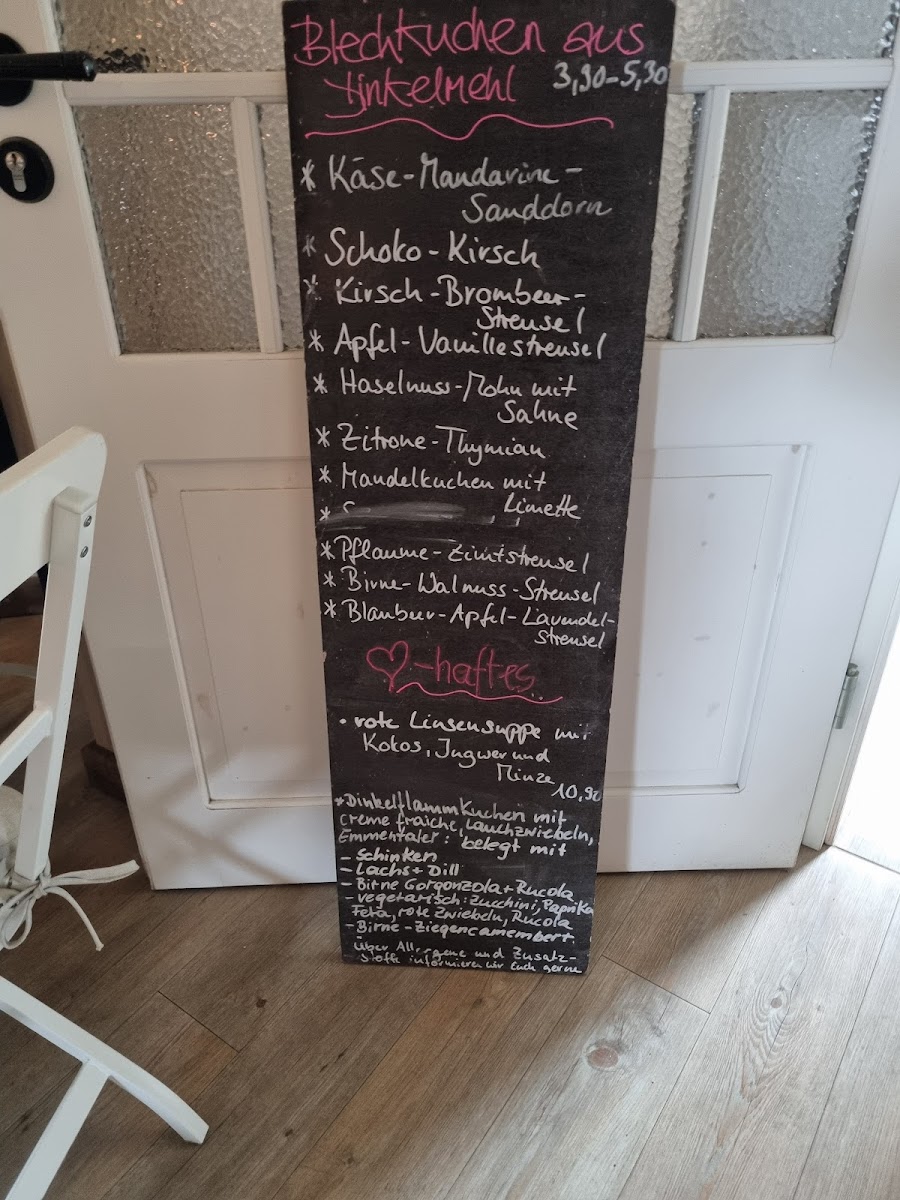 Blechkuchen aus
Dinkelmehl 3,90-5,30
* Käse-Mandarine-
Sanddorn
* Schoko-Kirsch
* Kirsch-Brombeer-
Streusel
* Apfel-Vanillestreusel
* Haselnuss-Mohn mit
Sahne
* Zitrone-Thymian
* Mandelkuchen mit
Limette
*
* Pflaume-Zimtstreusel
* Birne-Walnuss-Streusel
* Blaubeer-Apfel-Lavendel-
Streusel
♡-haftes
• rote Linsensuppe mit
Kokos, Ingwer und
Minze
10,90
* Dinkelflammkuchen mit
creme fraiche, Lauchzwiebeln,
Emmentaler: belegt mit
- Schinken
- Lachs + Dill
- Birne Gorgonzola + Rucola
- vegetarisch: Zucchini, Paprika
Feta, rote Zwiebeln, Rucola
- Birne - Ziegencamembert
Über Allergene und Zusatz-
stoffe informieren wir Euch gerne